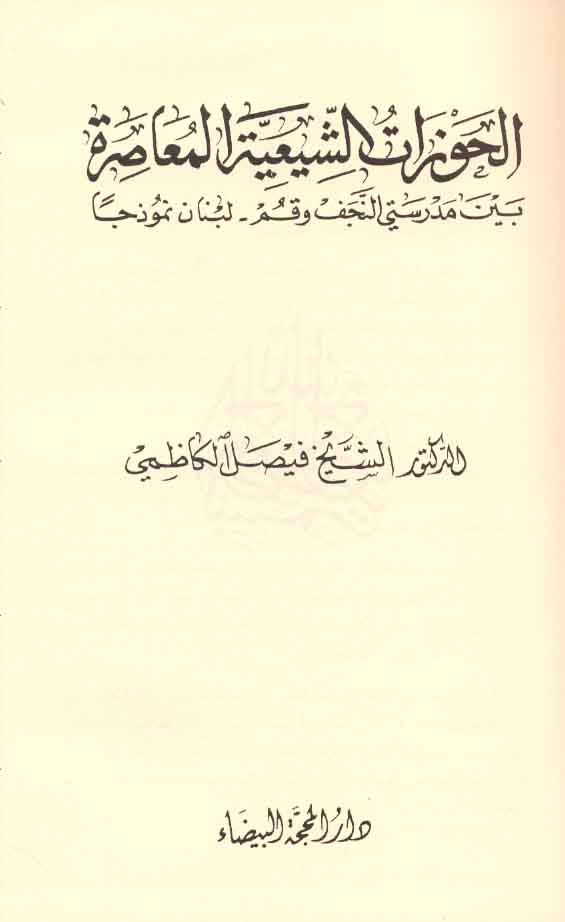 الحَوْزَاتُ الشِّيعِيَّة المُعَاصِرَة
بَينَ مَدرَسَتي النَّجَف وَقُم - لبْنَان نمُوذجًا
الدّكتور الشَّيْخ فَيْصَل الكَاظِمِيّ
دَارُ المَحَجَّة البَيضَاء